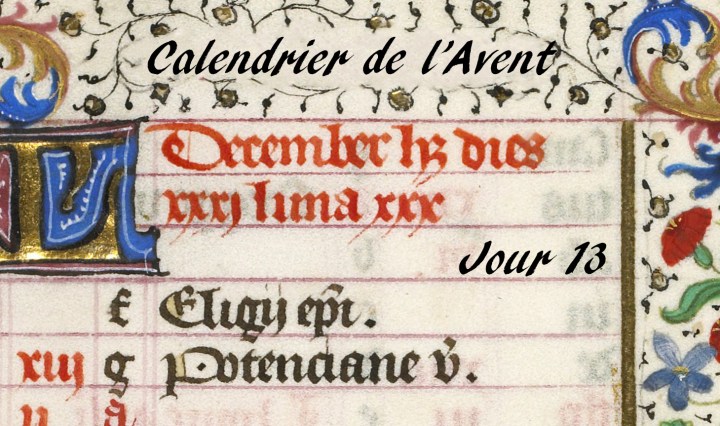 Calendrier de l'Avent
KL December hȝ dies
xxxj luna xxx
Jour 13
f Eligij epi.
xiij g Potenciane v.
ij A